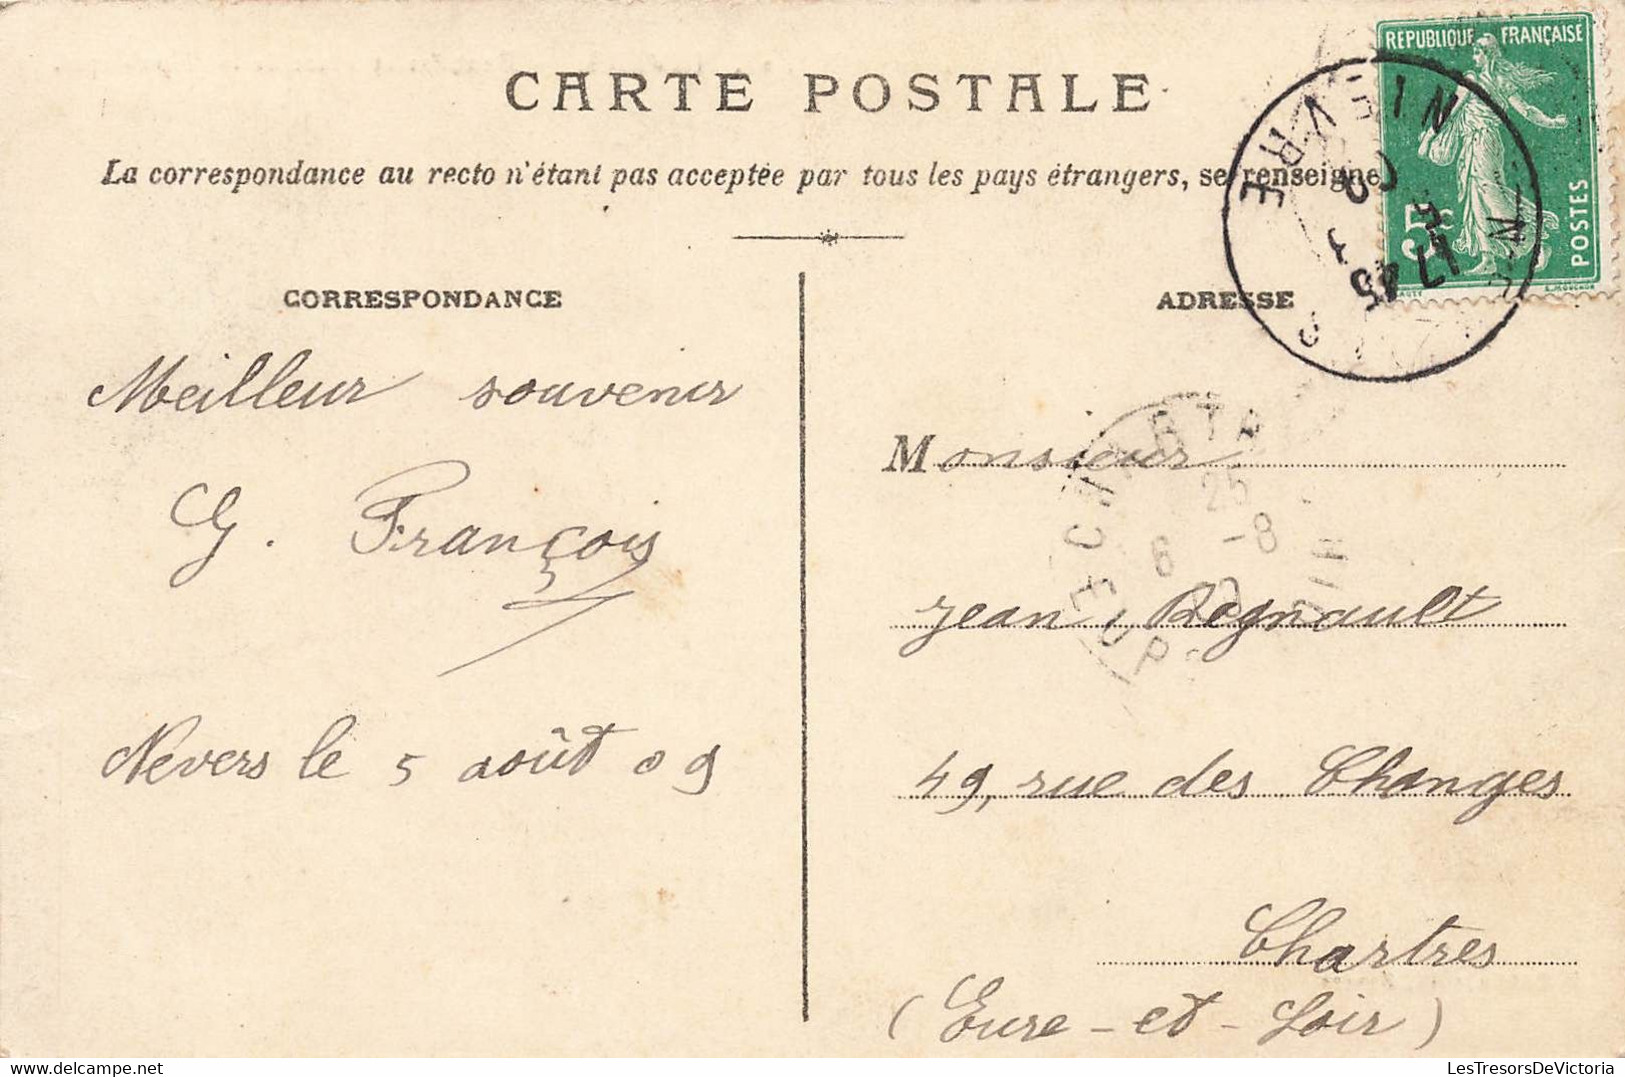 CARTE POSTALE
La correspondance au recto n'étant pas acceptée par tous les pays étrangers, se renseigner
REPUBLIQUE FRANÇAISE
5c
POSTES
NIEVRE
17 45
5
CORRESPONDANCE
Meilleur souvenir
G. François
Nevers le 5 août 09
ADRESSE
CHARTRES
25
6 -8
EURE
Monsieur
Jean Regnault
49, rue des Changes
Chartres
(Eure-et-Loir)
LesTresorsDeVictoria